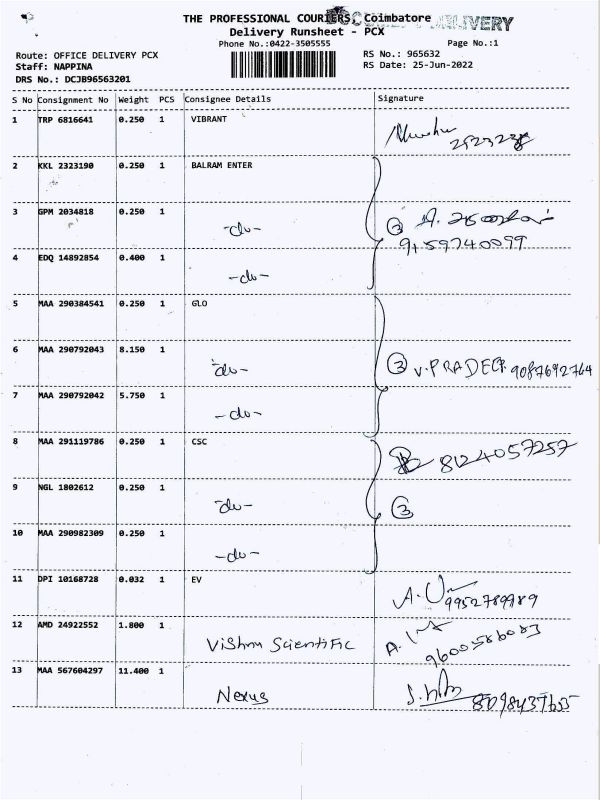 THE PROFESSIONAL COURIERS, Coimbatore
DELIVERY
Delivery Runsheet - PCX
Phone No.:0422-3505555
Page No.:1
Route: OFFICE DELIVERY PCX
RS No.: 965632
Staff: NAPPINA
RS Date: 25-Jun-2022
DRS No.: DCJB96563201
S No Consignment No Weight PCS Consignee Details Signature
1 TRP 6816641 0.250 1 VIBRANT
2 KKL 2323190 0.250 1 BALRAM ENTER
3 GPM 2034818 0.250 1 -do- 3
9159740099
4 EDQ 14892854 0.400 1 -do-
5 MAA 290384541 0.250 1 GLO
6 MAA 290792043 8.150 1 -do- 3 V.PRADEEP. 9087692764
7 MAA 290792042 5.750 1 -do-
8 MAA 291119786 0.250 1 CSC 8124057257
9 NGL 1802612 0.250 1 -do- 3
10 MAA 290982309 0.250 1 -do-
11 DPI 10168728 0.032 1 EV
9952789989
12 AMD 24922552 1.800 1 Vishnu Scientific
9600586083
13 MAA 567604297 11.400 1 Nexus